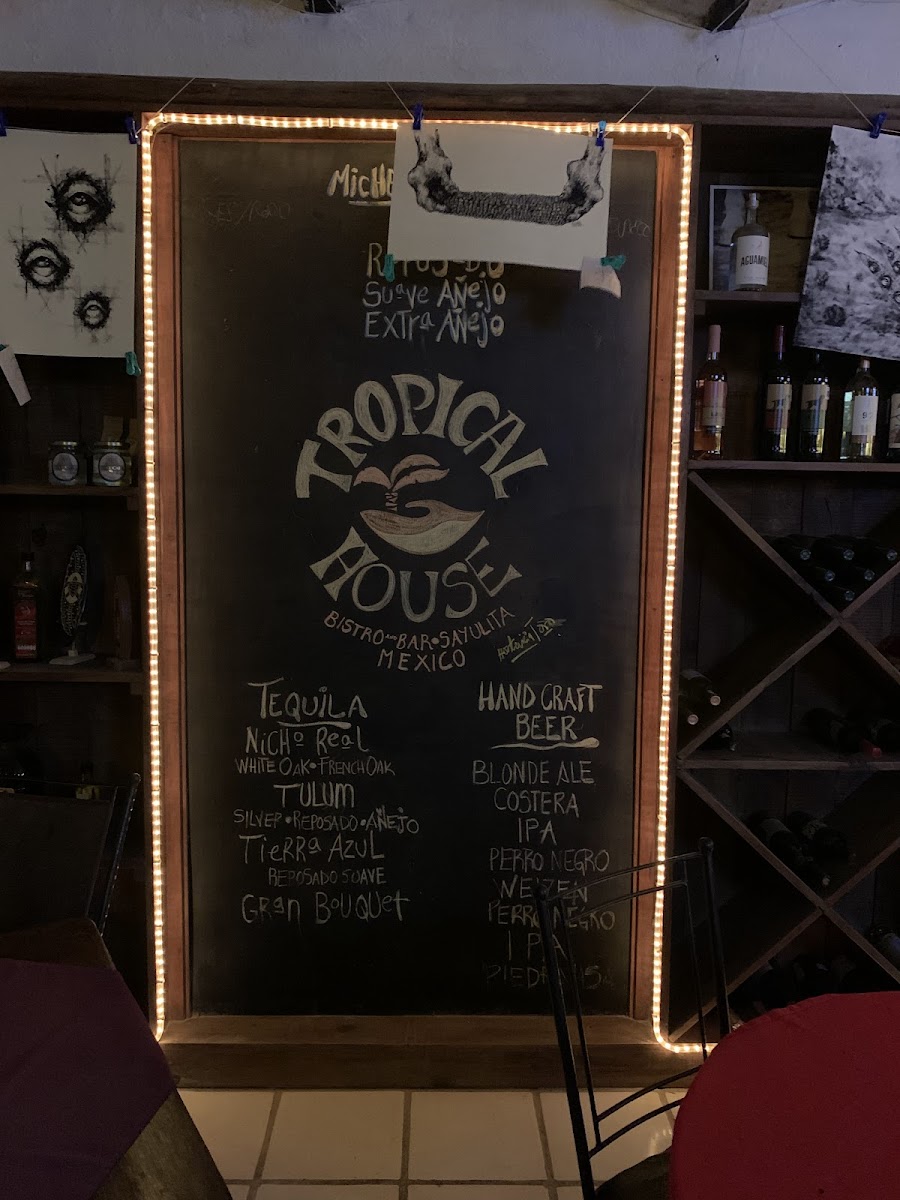 REPOSADO
Suave AÑejo
EXTra AÑejo
TROPICAL
HOUSE
BISTRO AND BAR • SAYULITA
MEXICO
TEQUILA
NicHo ReaL
WHITE OAK • FRENCH OAK
TULUM
SILVER • REPOSADO • AÑEJO
TierrA AZUL
REPOSADO SUAVE
GRan BOUQUeT
HAND CRAFT
BEER
BLONDE ALE
COSTERA
IPA
PERRO NEGRO
WEIZEN
PERRO NEGRO
IPA
AGUAMIEL